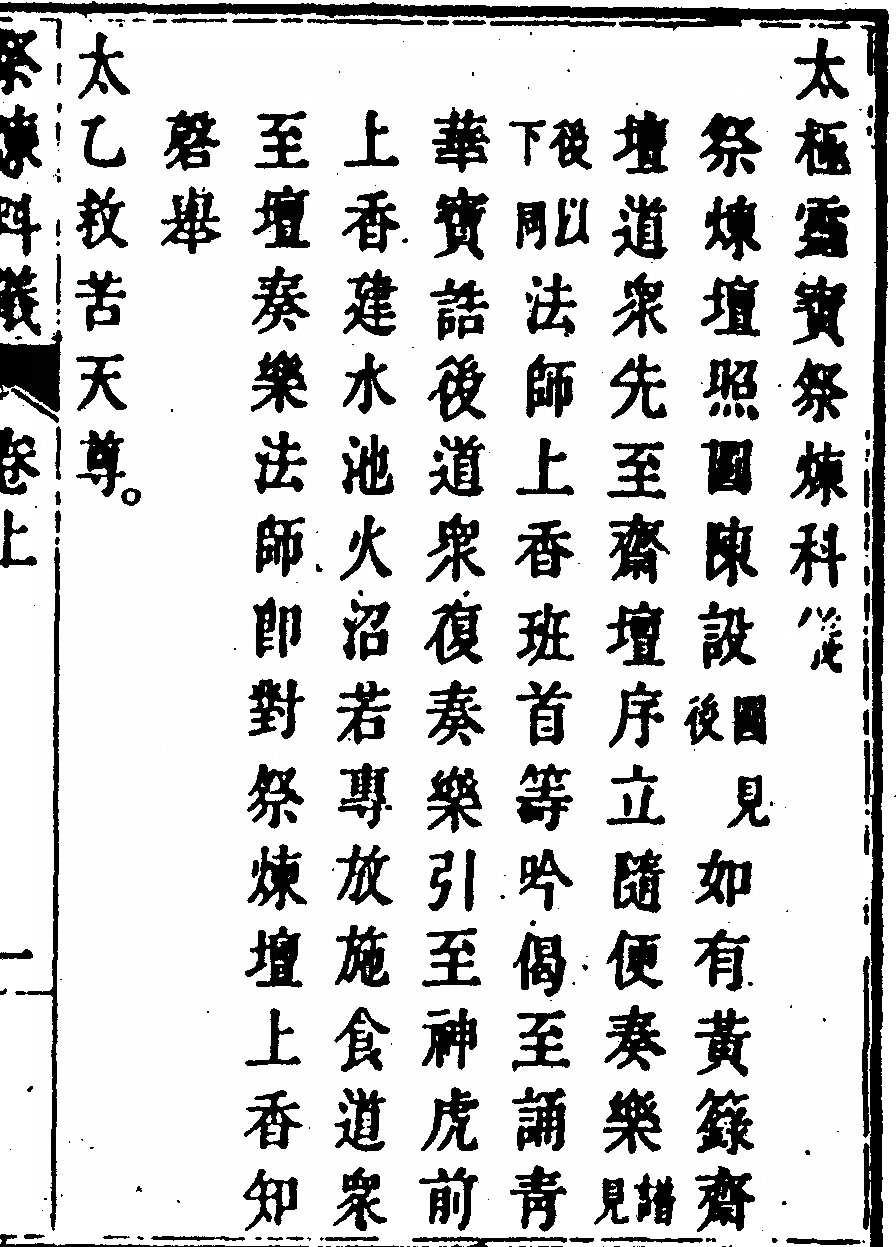 太極靈寶祭煉科儀
祭煉壇照圖陳設圖見後如有黃籙齋
壇道衆先至齋壇序立隨便奏樂譜見
後以下同法師上香班首等吟偈至誦青
華寶誥後道衆復奏樂引至神虎前
上香建水池火沼若專放施食道衆
至壇奏樂法師即對祭煉壇上香知
磬舉
太乙救苦天尊。
祭煉科儀 卷上 一